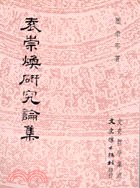 閻崇年著
文史哲學集成
文史哲出版社印行
袁崇煥研究論集